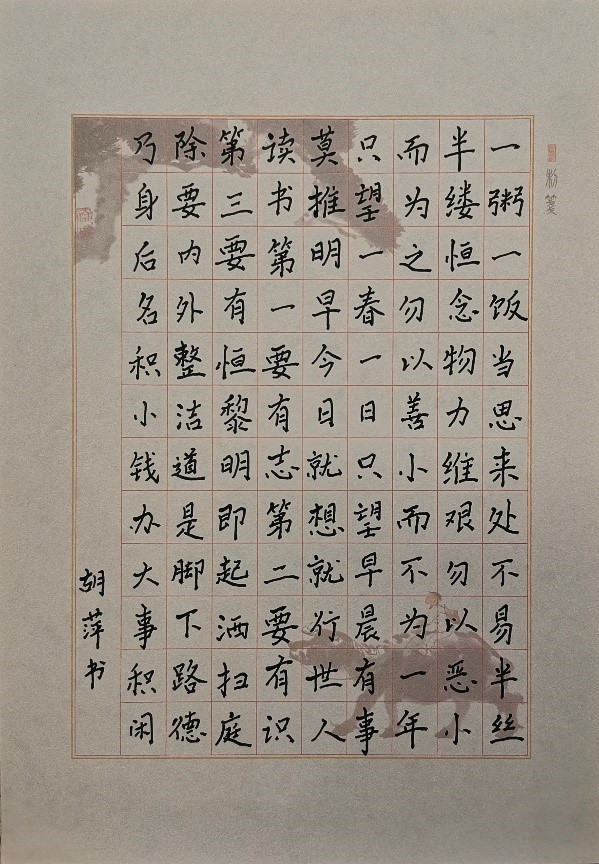 一粥一饭当思来处不易半丝
半缕恒念物力维艰勿以恶小
而为之勿以善小而不为一年
只望一春一日只望早晨有事
莫推明早今日就想就行世人
读书第一要有志第二要有识
第三要有恒黎明即起洒扫庭
除要内外整洁道是脚下路德
乃身后名积小钱办大事积闲
胡萍书